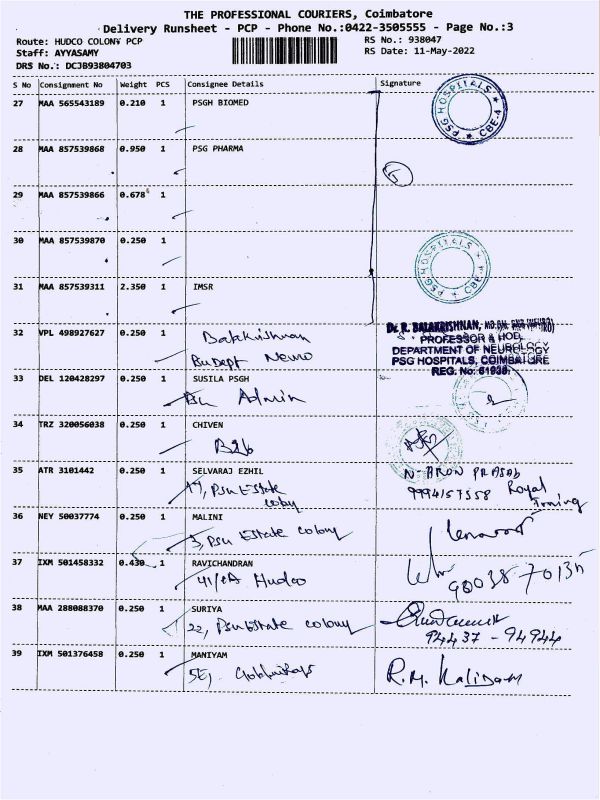 THE PROFESSIONAL COURIERS, Coimbatore
Delivery Runsheet - PCP - Phone No.:0422-3505555 - Page No.:3
Route: HUDCO COLONY PCP
RS No.: 938047
Staff: AYYASAMY
RS Date: 11-May-2022
DRS No.: DCJB93804703
S No Consignment No Weight PCS Consignee Details Signature
27 MAA 565543189 0.210 1 PSGH BIOMED
PSG HOSPITALS ★ CBE-4 ★
28 MAA 857539868 0.950 1 PSG PHARMA
29 MAA 857539866 0.678 1
30 MAA 857539870 0.250 1
PSG HOSPITALS ★ CBE-4 ★
31 MAA 857539311 2.350 1 IMSR
32 VPL 498927627 0.250 1 Balakrishnan
Dept Neuro
Dr. R. BALAKRISHNAN,
PROFESSOR & HOD,
DEPARTMENT OF NEUROLOGY
PSG HOSPITALS, COIMBATORE
REG. No: 61936
33 DEL 120428297 0.250 1 SUSILA PSGH
Admin
34 TRZ 320056038 0.250 1 CHIVEN
B26
35 ATR 3101442 0.250 1 SELVARAJ EZHIL
19, Psu Estate
coloby
N. ARUN PRASAD
9994157558 Royal
36 NEY 50037774 0.250 1 MALINI
3, Psu Estate colony
37 IXM 501458332 0.430 1 RAVICHANDRAN
41/6A Hudco
90038 70135
38 MAA 288088370 0.250 1 SURIYA
22, Psu Estate colony
94437 - 94944
39 IXM 501376458 0.250 1 MANIYAM
R.M. Kalidam